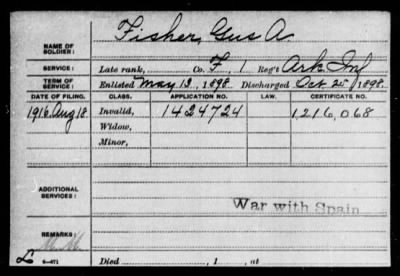 NAME OF SOLDIER: Fisher, Gus A.
SERVICE: Late rank, Co. F, 1 Reg't Ark Inf
TERM OF SERVICE: Enlisted May 13, 1898. Discharged Oct. 25, 1898.
DATE OF FILING. CLASS. APPLICATION NO. LAW. CERTIFICATE NO.
1916. Aug 18. Invalid, 1424724 1216,068
Widow,
Minor,
ADDITIONAL SERVICES:
War with Spain
REMARKS:
L 3-471
Died , 1 , at